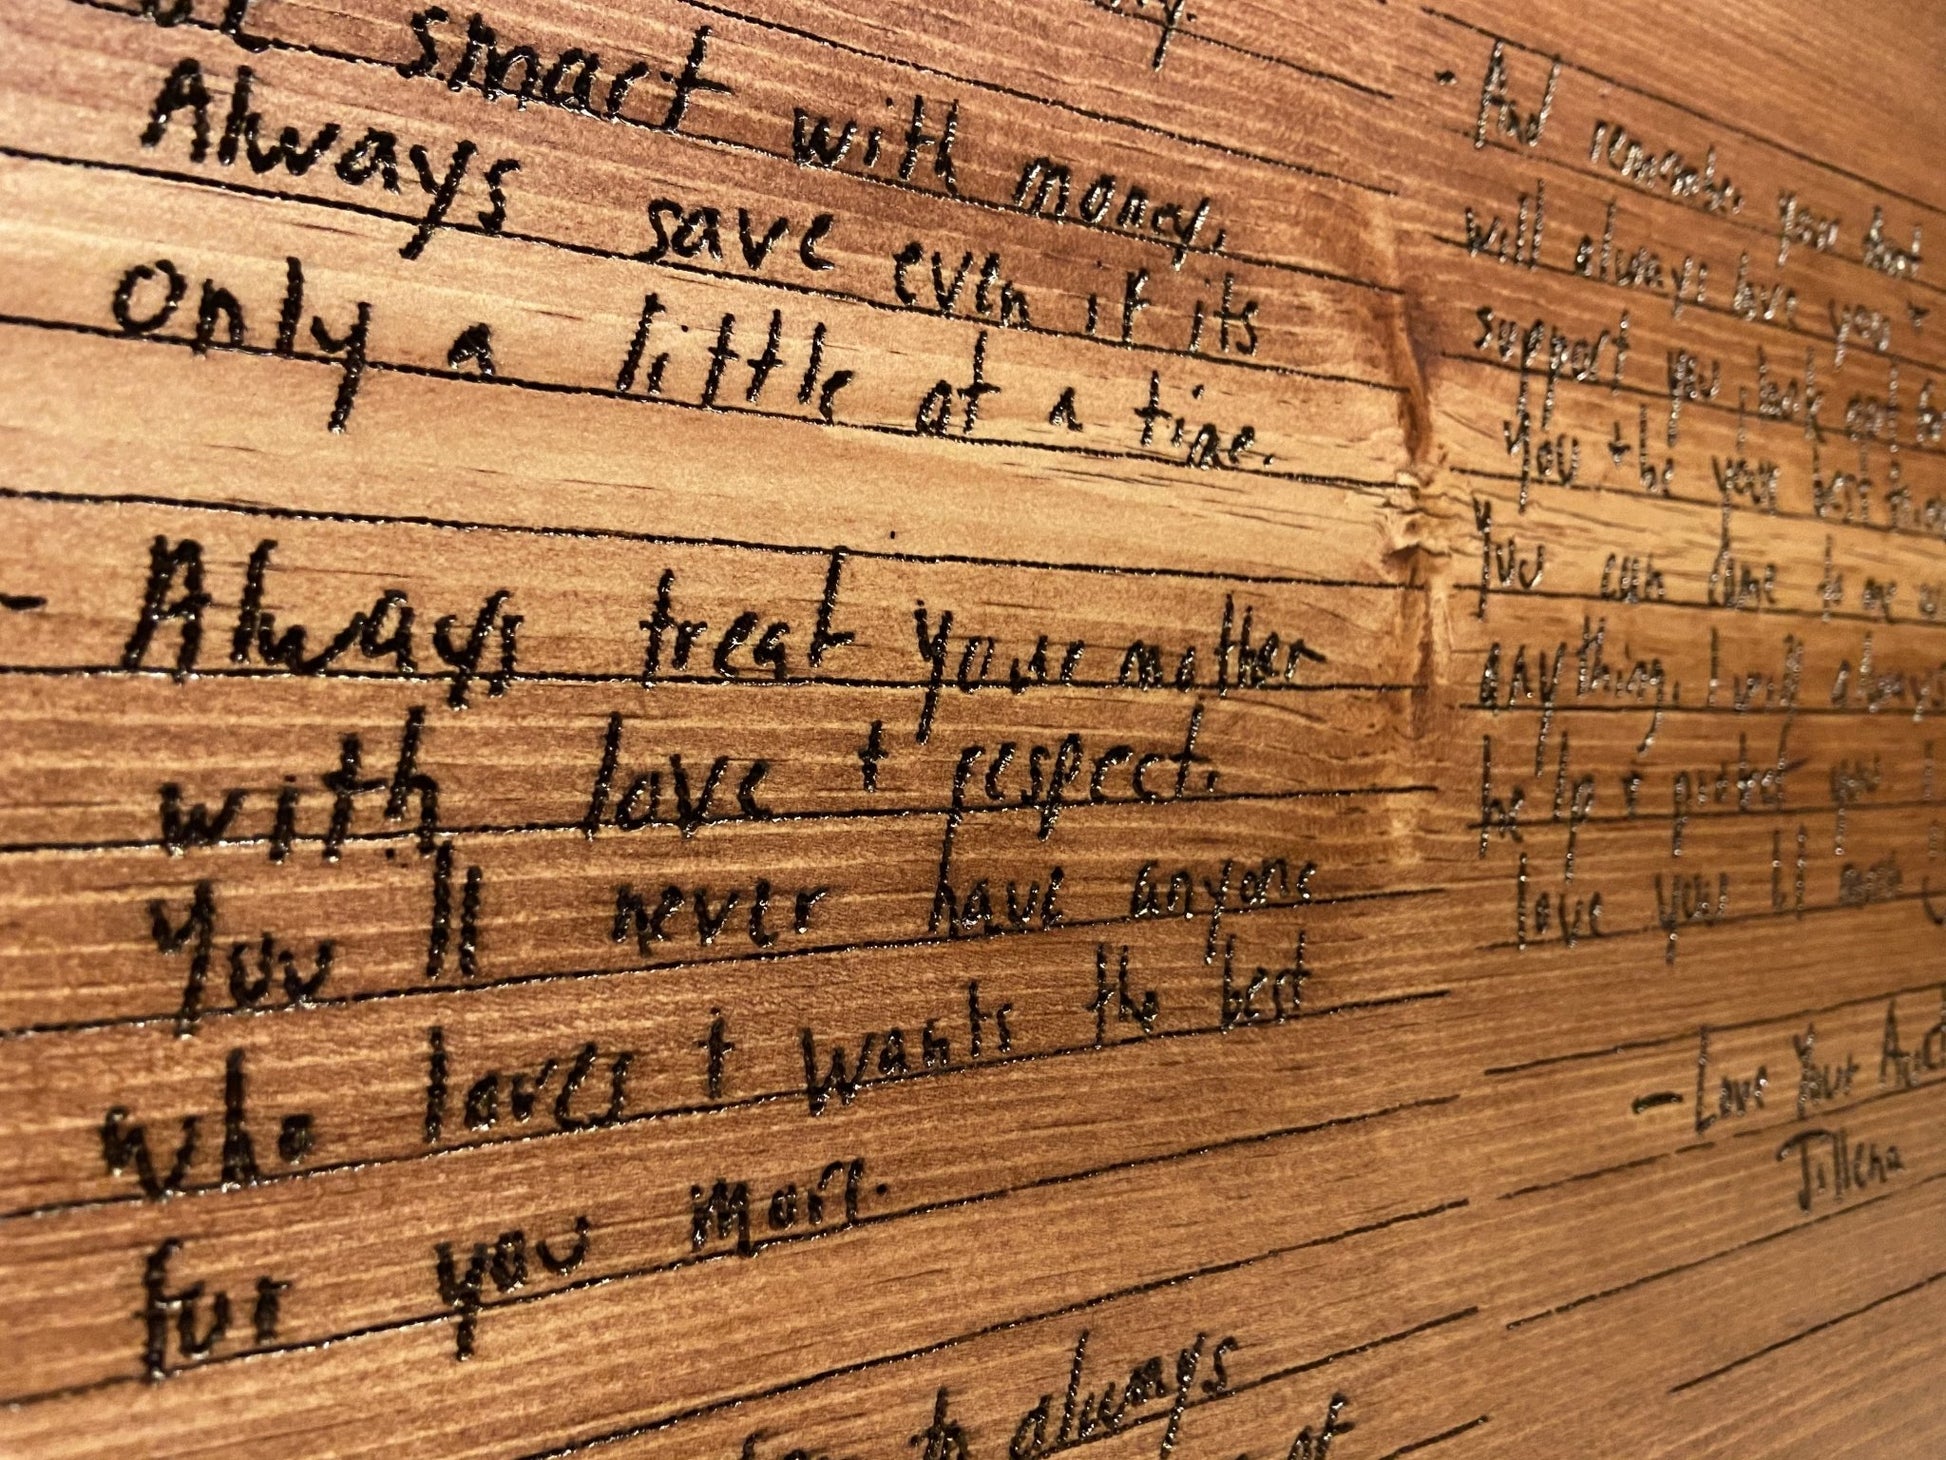 smart with money.
Always save even if its
only a little at a time.
- Always treat your mother
with love + respect.
You'll never have anyone
who loves + wants the best
for you more.
to always
at
- And remember your Aunt
will always love you +
support you, look out for
you + be your best
You can come to me
anything. I will always
help + protect you
love you
- Love Your
Jillena